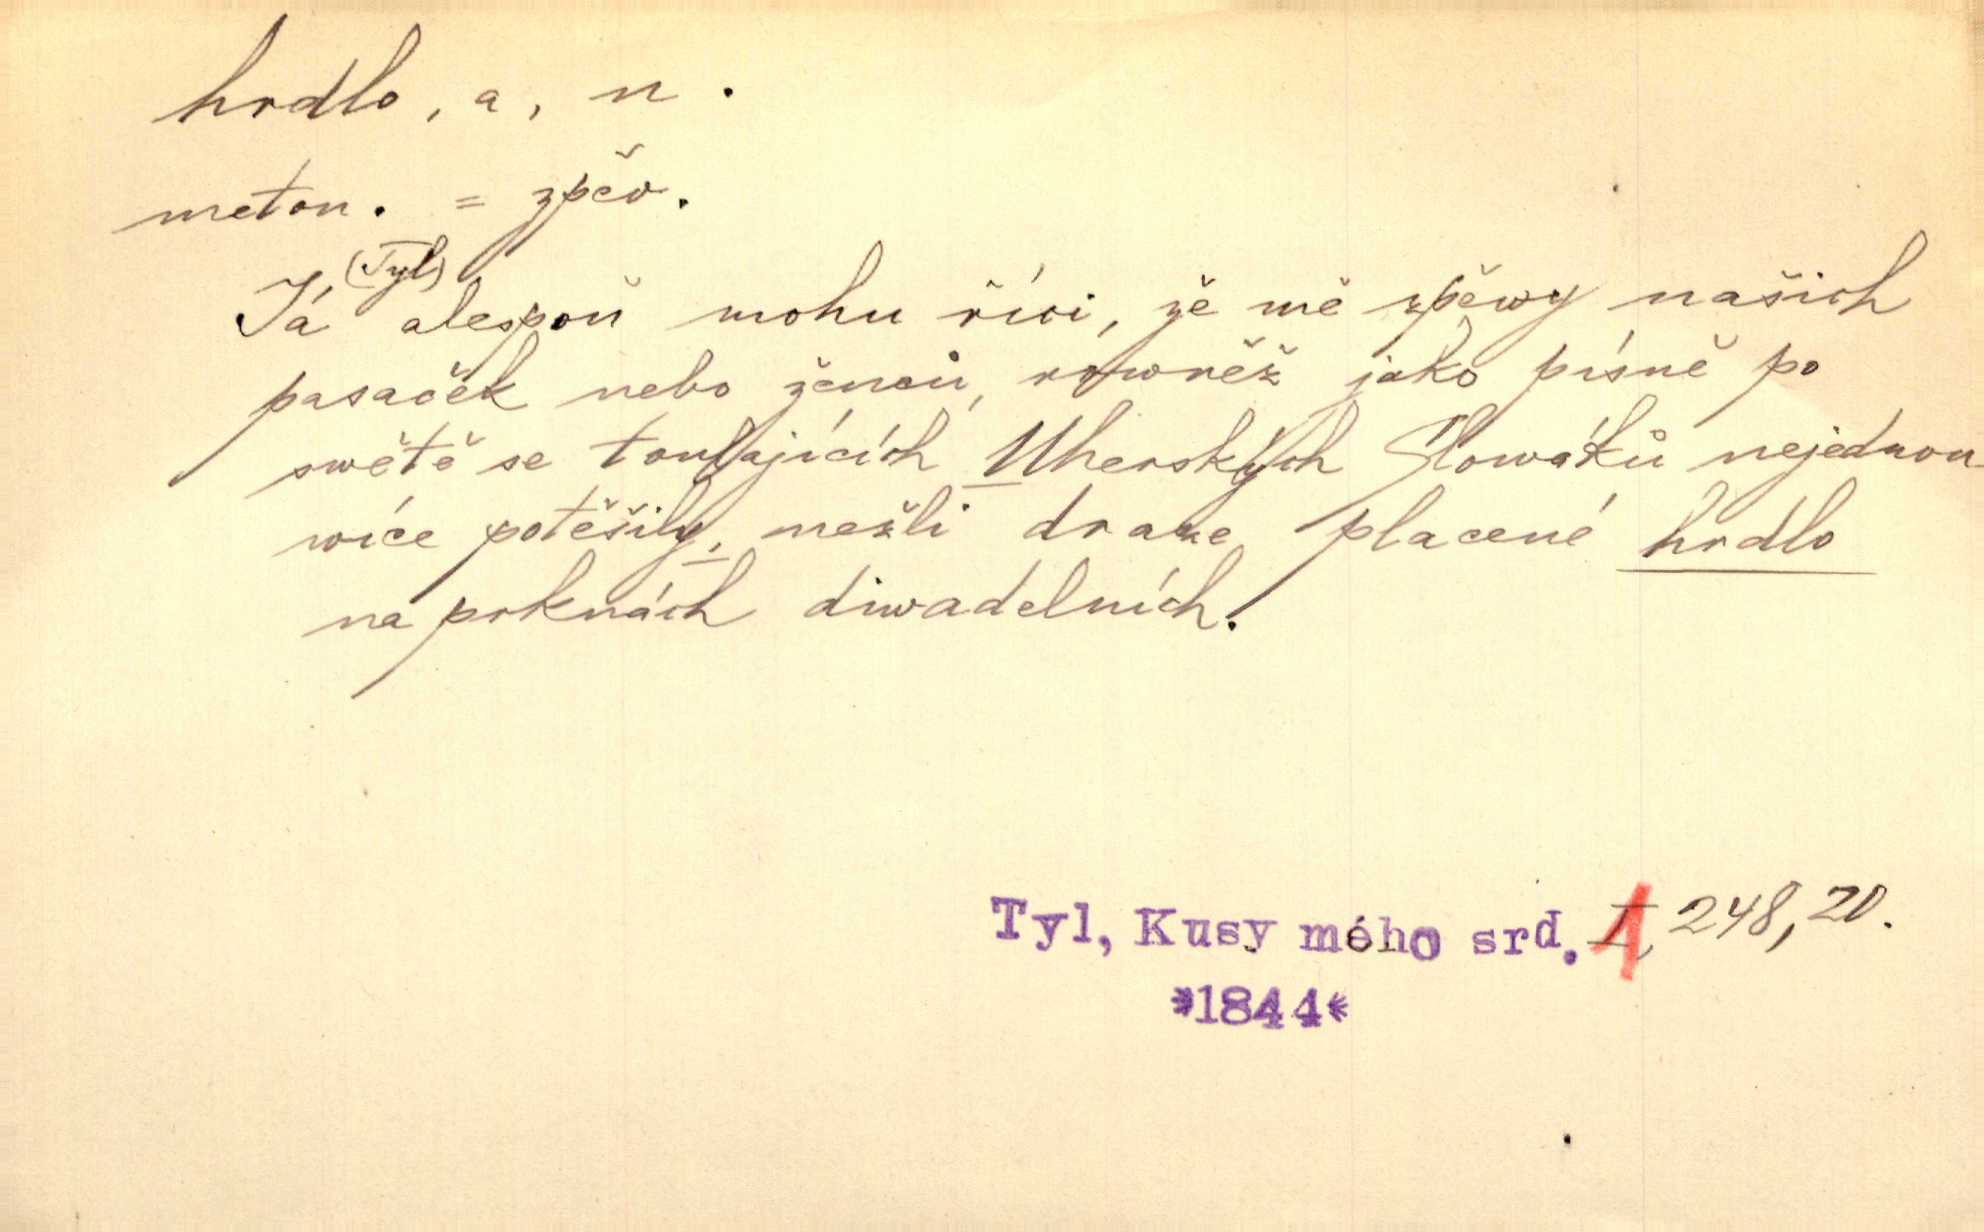 hrdlo, a, n.
meton. = zpěv.
(Tyl)
Já alespoň mohu říci, že mě zpěwy našich
pasaček nebo ženců, rowněž jako písně po
swětě se toulajících Uherských Slowáků nejednou
wíce potěšily, nežli draze placené hrdlo
na prknách diwadelních.
Tyl, Kusy mého srd. I, 248, 20.
*1844*